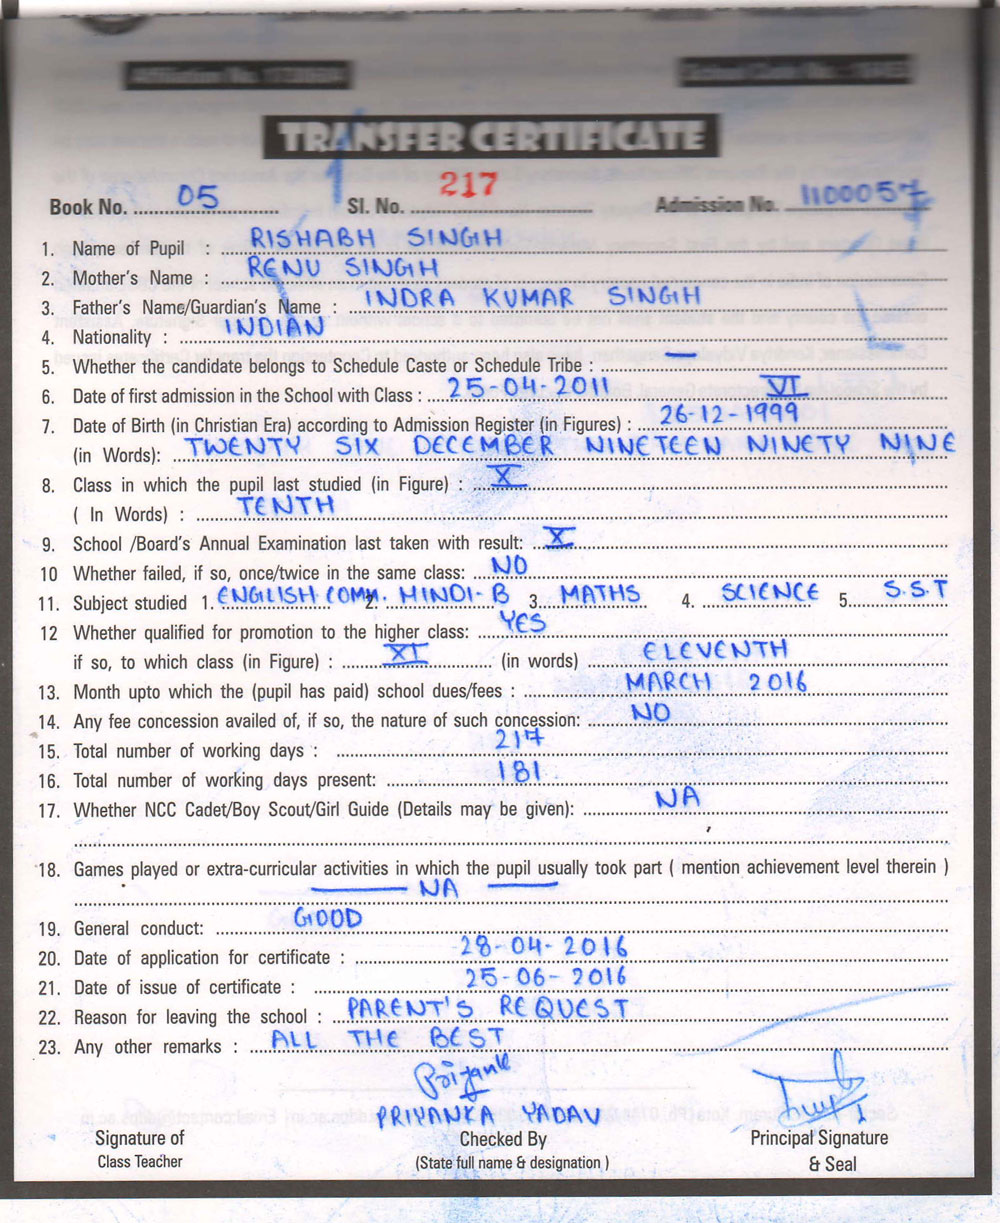 TRANSFER CERTIFICATE
Book No. 05 Sl. No. 217 Admission No. 1100057
1. Name of Pupil : RISHABH SINGH
2. Mother's Name : RENU SINGH
3. Father's Name/Guardian's Name : INDRA KUMAR SINGH
4. Nationality : INDIAN
5. Whether the candidate belongs to Schedule Caste or Schedule Tribe :
6. Date of first admission in the School with Class : 25-04-2011 VI
7. Date of Birth (in Christian Era) according to Admission Register (in Figures) : 26-12-1999
(in Words): TWENTY SIX DECEMBER NINETEEN NINETY NINE
8. Class in which the pupil last studied (in Figure) : X
( In Words) : TENTH
9. School /Board's Annual Examination last taken with result: X
10 Whether failed, if so, once/twice in the same class: NO
11. Subject studied 1. ENGLISH COMM. 2. HINDI-B 3. MATHS 4. SCIENCE 5. S.S.T
12 Whether qualified for promotion to the higher class: YES
if so, to which class (in Figure) : XI (in words) ELEVENTH
13. Month upto which the (pupil has paid) school dues/fees : MARCH 2016
14. Any fee concession availed of, if so, the nature of such concession: NO
15. Total number of working days : 217
16. Total number of working days present: 181
17. Whether NCC Cadet/Boy Scout/Girl Guide (Details may be given): NA
18. Games played or extra-curricular activities in which the pupil usually took part ( mention achievement level therein )
NA
19. General conduct: GOOD
20. Date of application for certificate : 28-04-2016
21. Date of issue of certificate : 25-06-2016
22. Reason for leaving the school : PARENT'S REQUEST
23. Any other remarks : ALL THE BEST
Priyanka
PRIYANKA YADAV
Signature of Checked By Principal Signature
Class Teacher (State full name & designation ) & Seal